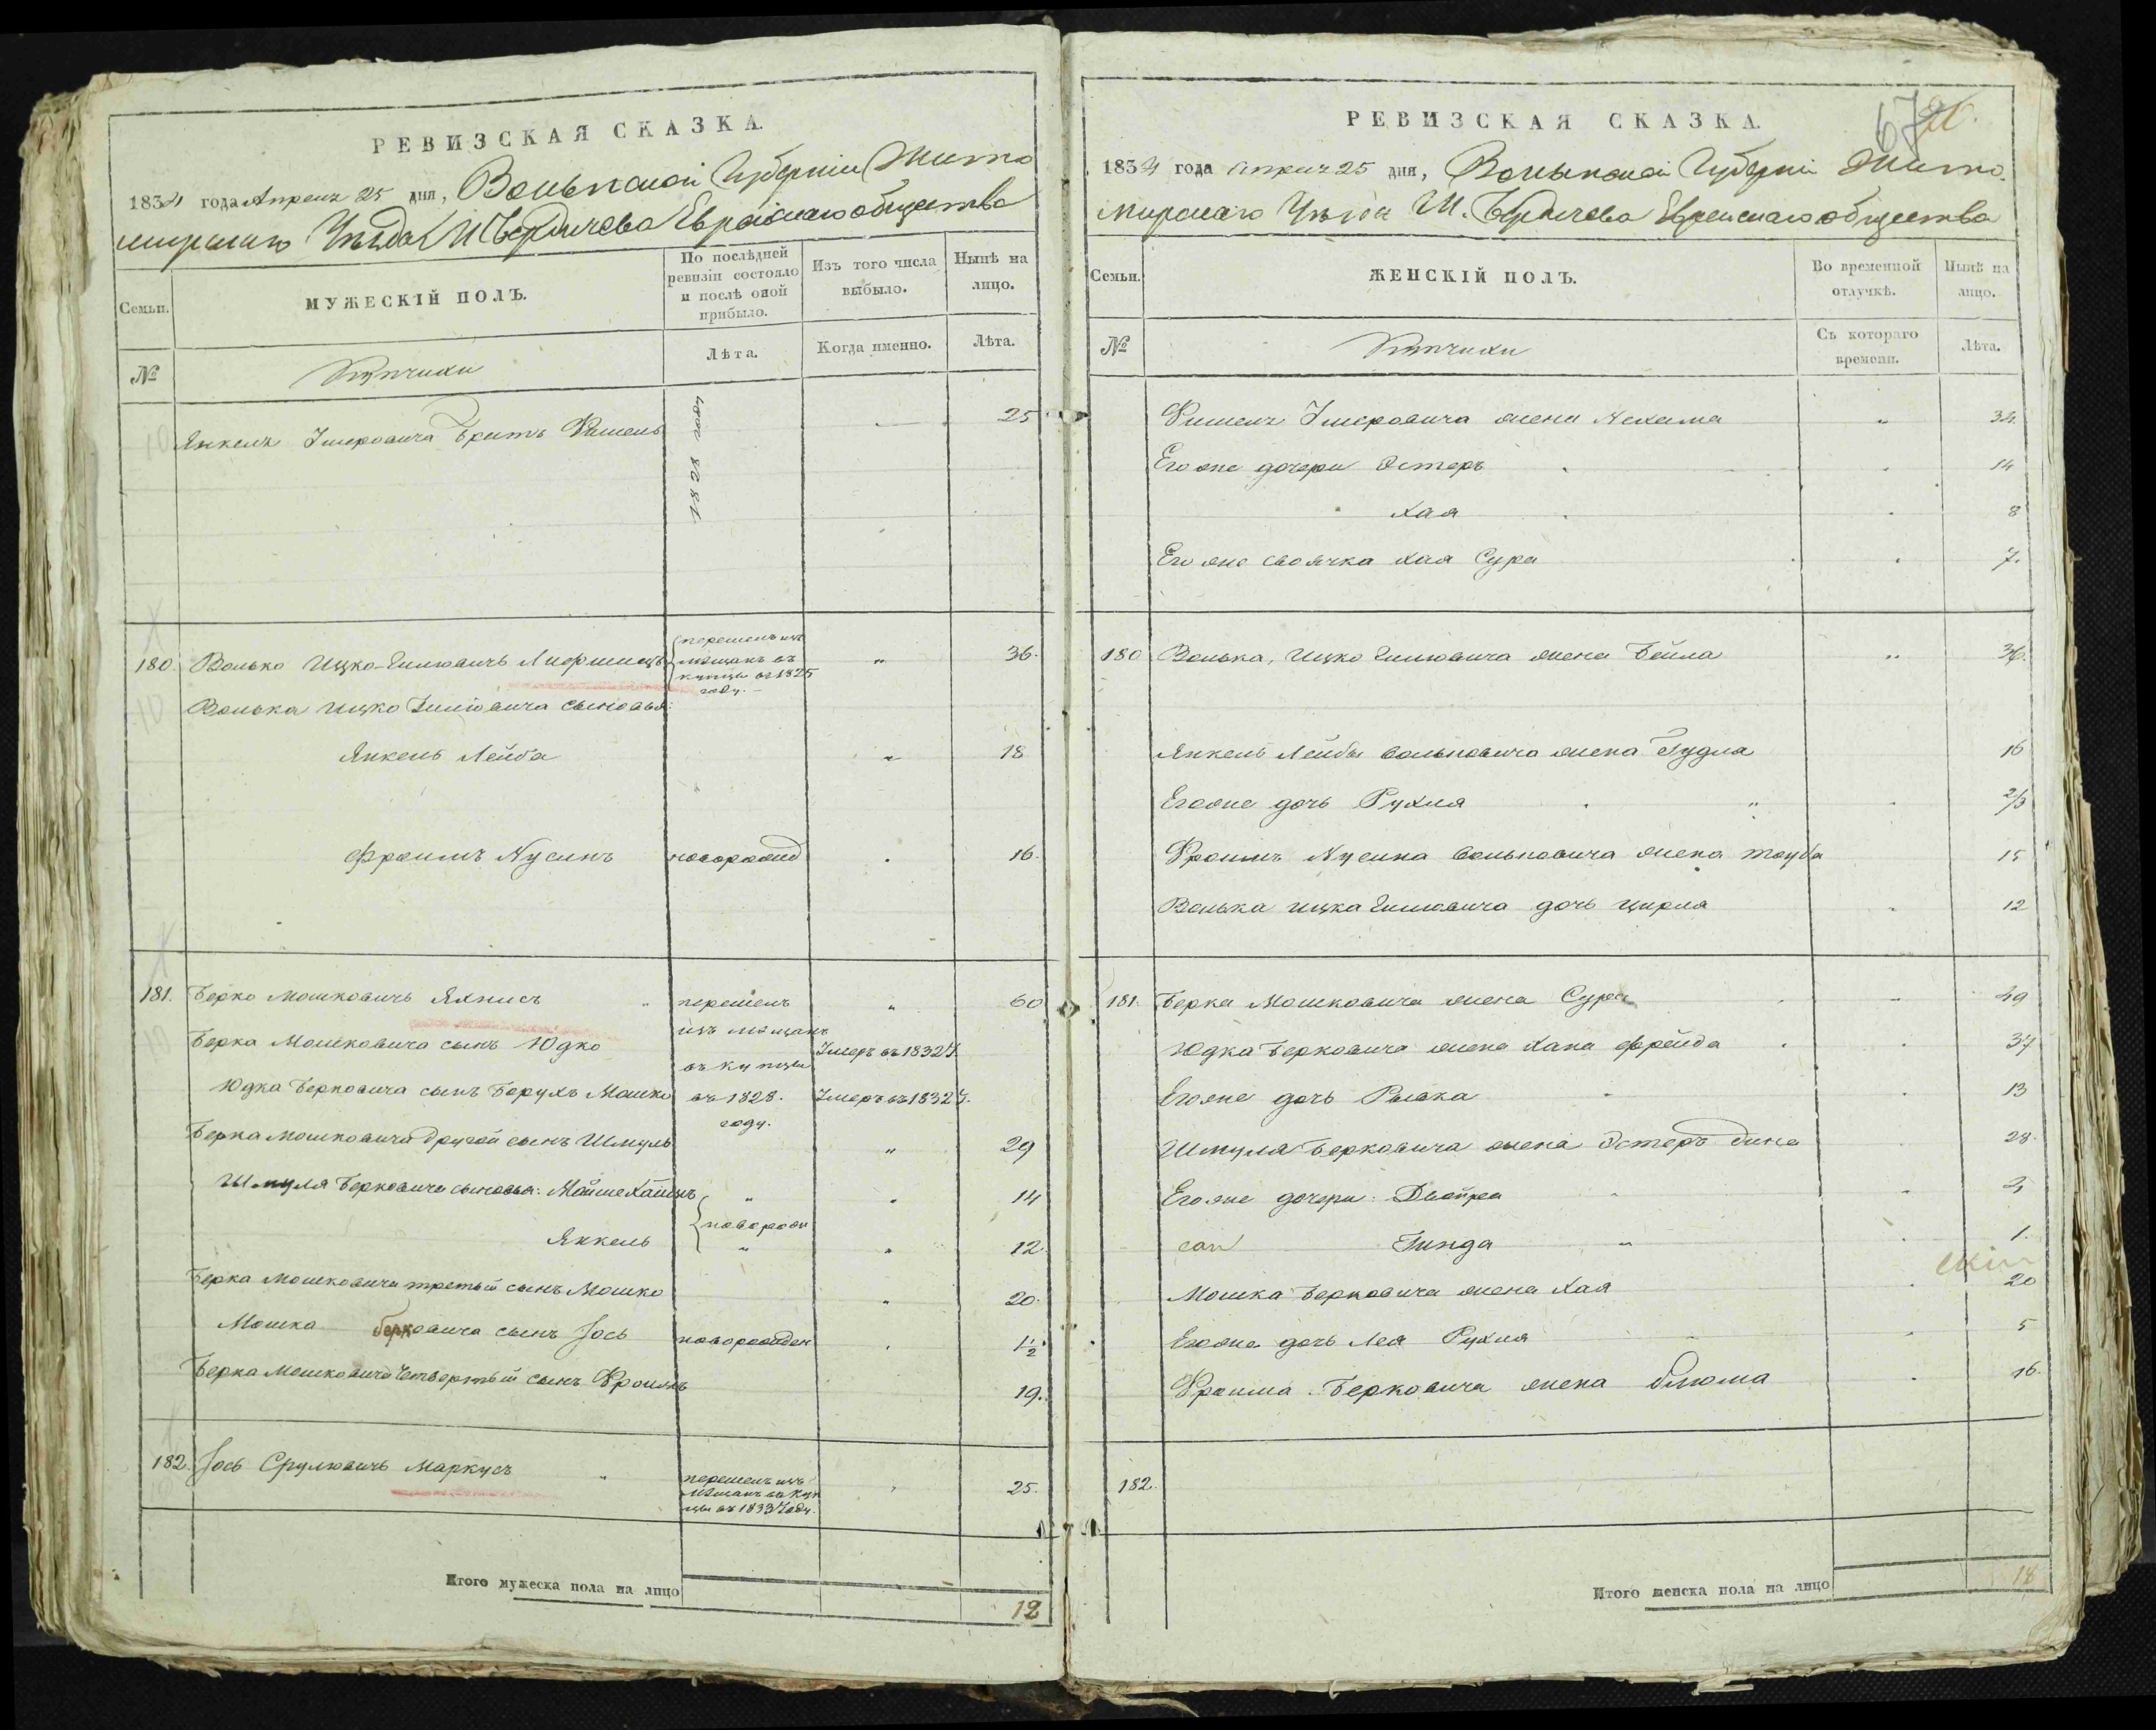 РЕВИЗСКАЯ СКАЗКА.
1834 года Апреля 25 дня, Волынской Губернии Жито
мирскаго Уезда М. Бердичева Еврейскаго общества
Семьи.
МУЖЕСКІЙ ПОЛЪ.
По послѣдней ревизіи состояло и послѣ оной прибыло.
Изъ того числа выбыло.
Нынѣ на лицо.
№
Купчихи
Лѣта.
Когда именно.
Лѣта.
Янкеля братъ Фишель 1828 году 25
180. Волько Ицко перешелъ изъ мещанъ въ купцы въ 1825 году. 36.
Волька Ицко сыновья:
Янкель Лейба 18
Фроимъ Нусинъ новорожд 16.
181. Берко Мошковичъ Яхнисъ перешелъ 60
изъ мещанъ
Берка Мошковича сынъ Юдко въ купцы Умеръ въ 1832 г.
Юдка Берковича сынъ Борухъ Мошко въ 1828. году. Умеръ въ 1832 г.
Берка Мошковича другой сынъ Шмуль 29
Шмуля Берковича сыновья: Мойше Хаимъ 14
новорожд
Янкель 12
Берка Мошковича третьй сынъ Мошко 20.
Мошка берковича сынъ Іось новорожден 1 1/2
Берка Мошковича Четвертый сынъ Фроимъ 19.
182. Іось Срулювичъ Маркусъ перешелъ изъ мещанъ въ куп цы въ 1833 году. 25.
Итого мужеска пола на лицо 12
РЕВИЗСКАЯ СКАЗКА.
67
26.
1834 года Апреля 25 дня, Волынской Губерніи Жито.
мирскаго Уезда М. Бердичева Еврейскаго общества
Семьи.
ЖЕНСКІЙ ПОЛЪ.
Во временной отлучкѣ.
Нынѣ на лицо.
№
Купчихи
Съ котораго времени.
Лѣта.
Фишеля жена Нехама 32.
Его же дочери Эстеръ 14
Хая 8
Его же своячка Хая Сура 7.
180 Волька, Ицко жена Бейла 36.
Янкель Лейбы Вольковича жена Гудля 16
Его же дочь Рухля 2/3
Фроимъ Нусина Вольковича жена Тауба 15
Волька Ицка дочь Цирля 12
181. Берка Мошковича жена Сура 49
Юдка Берковича жена Хана Фрейда 37
Его же дочь Рывка 13
Шмуля Берковича жена Эстеръ Дина 28.
Его же дочери: Двойра 3
Гинда 1.
Мошка Берковича жена Хая 20
Его же дочь Лея Рухля 5
Фроима Берковича жена Блюма 16.
182.
Итого женска пола на лицо 18